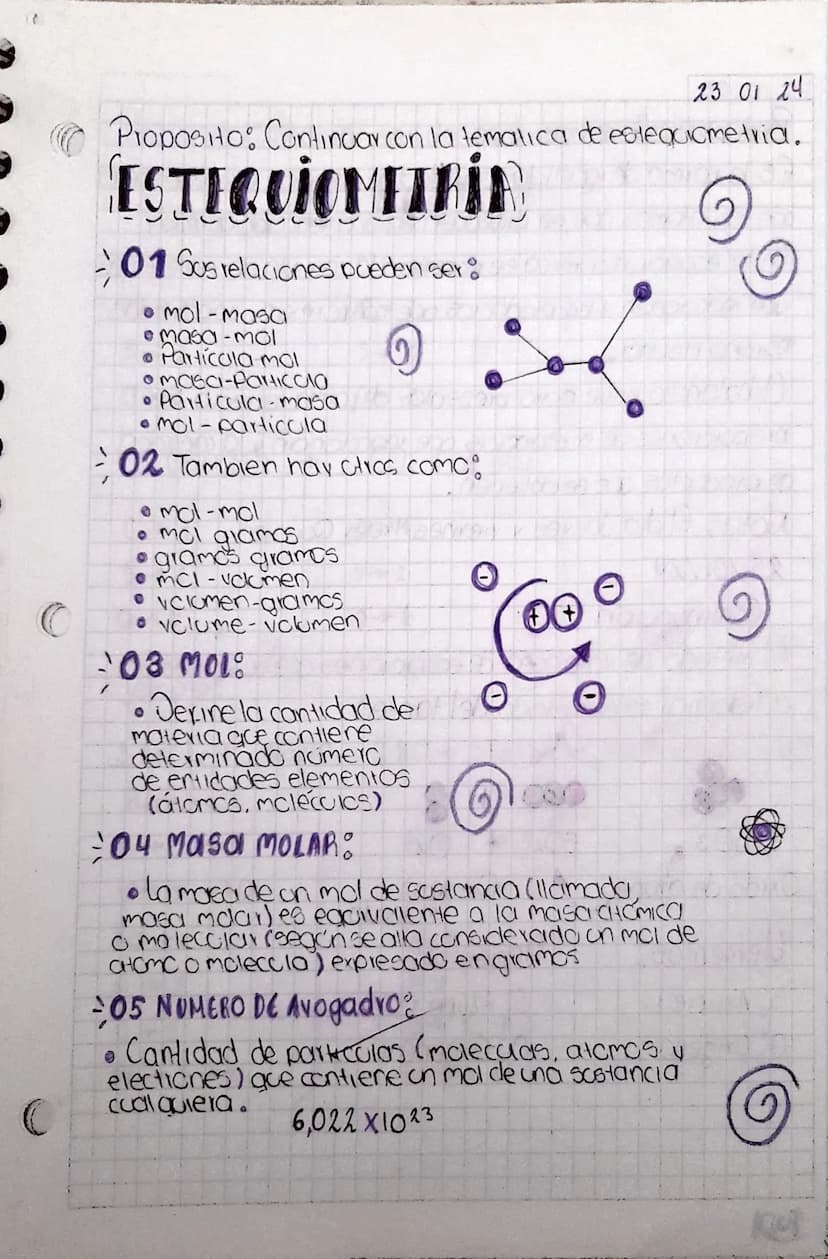 23 01 24
Proposito: Continuar con la tematica de estequiometria.
ESTEQUIOMETRÍA
01 Sus relaciones pueden ser:
• mol-masa
• masa-mol
• Partícula mol
• masa-Partícula
• Partícula-masa
• mol-partícula
02 Tambien hay otros como:
• mol-mol
• mol gramos
• gramos gramos
• mol-volumen
• volumen-gramos
• volume-volumen
03 MOL:
• Define la cantidad de
materia que contiene
determinado número
de entidades elementos
(átomos, moléculos)
04 MASA MOLAR:
• La masa de un mol de sustancia (llamada
masa molar) es equivalente a la masa atómica
o molecular (según se alla considerado un mol de
atomo o molecula) expresado en gramos
05 NUMERO DE Avogadro:
• Cantidad de partículas (moleculas, atomos y
electrones) que contiene un mol de una sustancia
cualquiera.
6,022 X10²³
+ +
- - - -